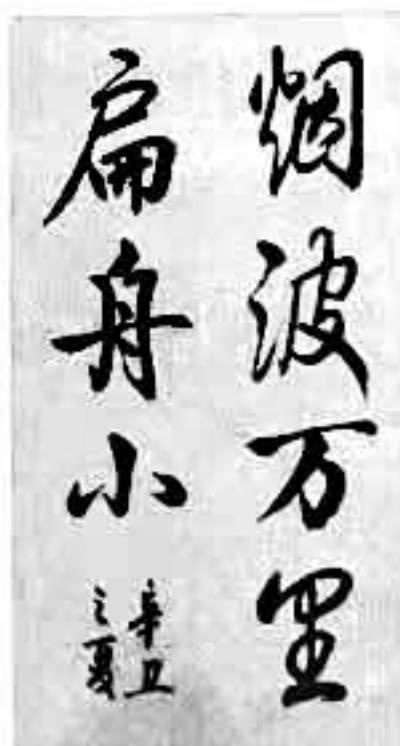 烟波万里
扁舟小
辛丑
之夏